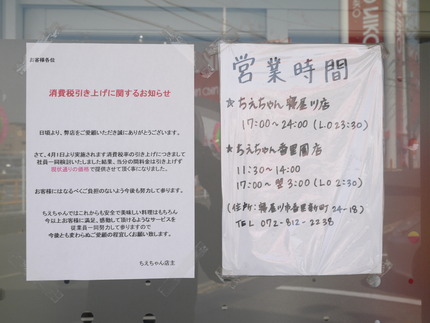 お客様各位
消費税引き上げに関するお知らせ
日頃より、弊店をご愛顧いただき誠にありがとうございます。
さて、4月1日より実施されます消費税率の引き上げにつきまして
社員一同検討いたしました結果、当分の間料金は引き上げず
現状通りの価格で提供させて頂く事になりました。
お客様にはなるべくご負担のないよう今後も努力して参ります。
ちえちゃんではこれからも安全で美味しい料理はもちろん
今以上お客様に満足、感動して頂けるようなサービスを
従業員一同努力して参りますので
今後とも変わらぬご愛顧の程宜しくお願い致します。
ちえちゃん店主
営業時間
★ちえちゃん寝屋川店
17:00～24:00 (LO 23:30)
★ちえちゃん香里園店
11:30～14:00
17:00～翌3:00 (LO 2:30)
(住所:寝屋川市香里新町24-18)
TEL 072-812-2238